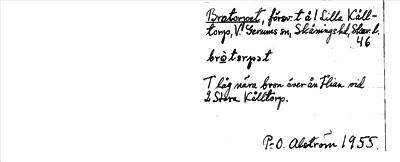 Bratorpet, försv. t å 1 Lilla Kåll-
torp, V. Gerums sn, Skånings hd, Skar. l.
46
bròtorpet
T låg nära bron över ån Flian vid
2 Stora Kålltorp.
P.O. Alström 1955.